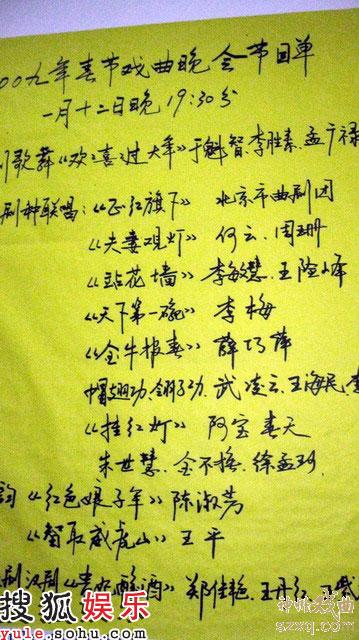 00九年春节戏曲晚会节目单
一月十二日晚 19:30分
歌舞《欢欢喜喜过大年》于魁智.李胜素.孟广禄
剧种联唱:《正红旗下》 北京市曲剧团
《夫妻观灯》 何云.周珊
《站花墙》 李敏慧.王险峰
《天下第一碗》 李梅
《金牛报春》 薛巧萍
帽翅功.翎子功.武凌云.王海民.
《挂红灯》 阿宝 春天
朱世慧.金不换.徐孟珂.
韵《红色娘子军》陈淑芳
《智取威虎山》王平
剧汉剧《贵妃醉酒》郑佳艳.王丹红
搜狐娱乐
yule.sohu.com